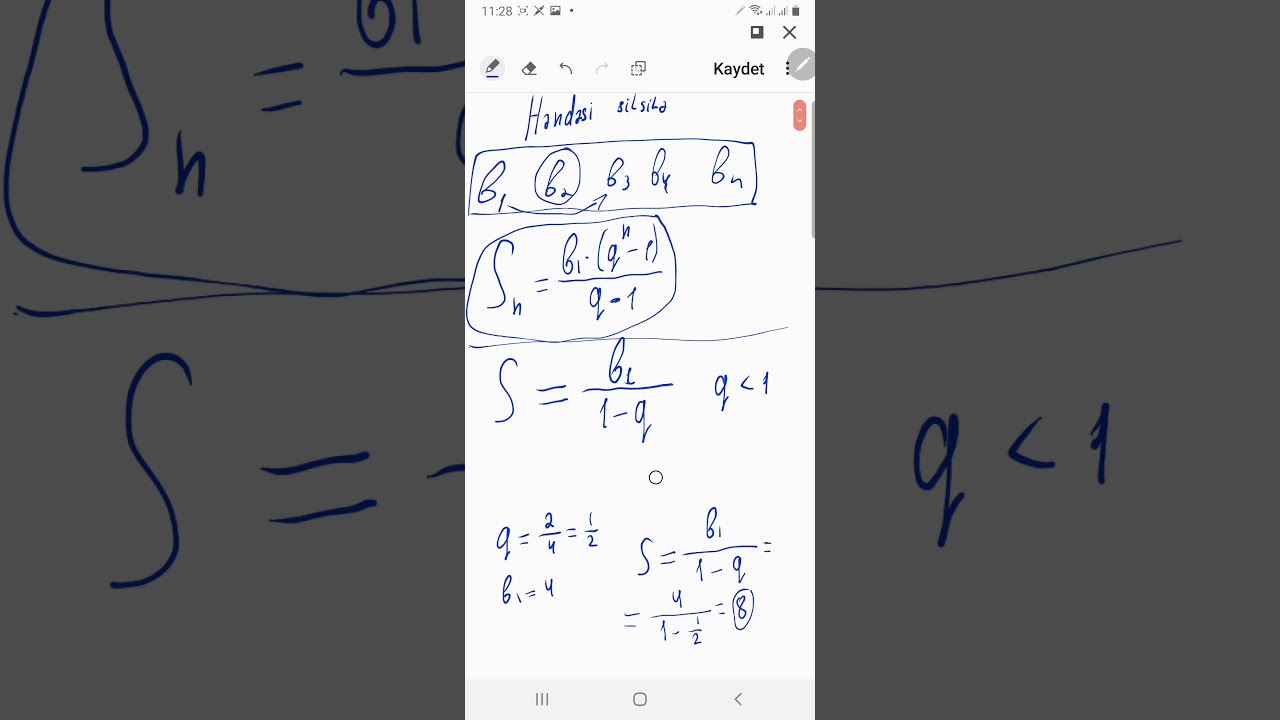 11:28
Kaydet
Həndəsi silsilə
b₁ b₂ b₃ b₄ bₙ
Sₙ = b₁·(qⁿ-1) / q-1
S = b₁ / 1-q q < 1
q = 2/4 = 1/2
b₁ = 4
S = b₁ / 1-q =
= 4 / 1-1/2 = 8